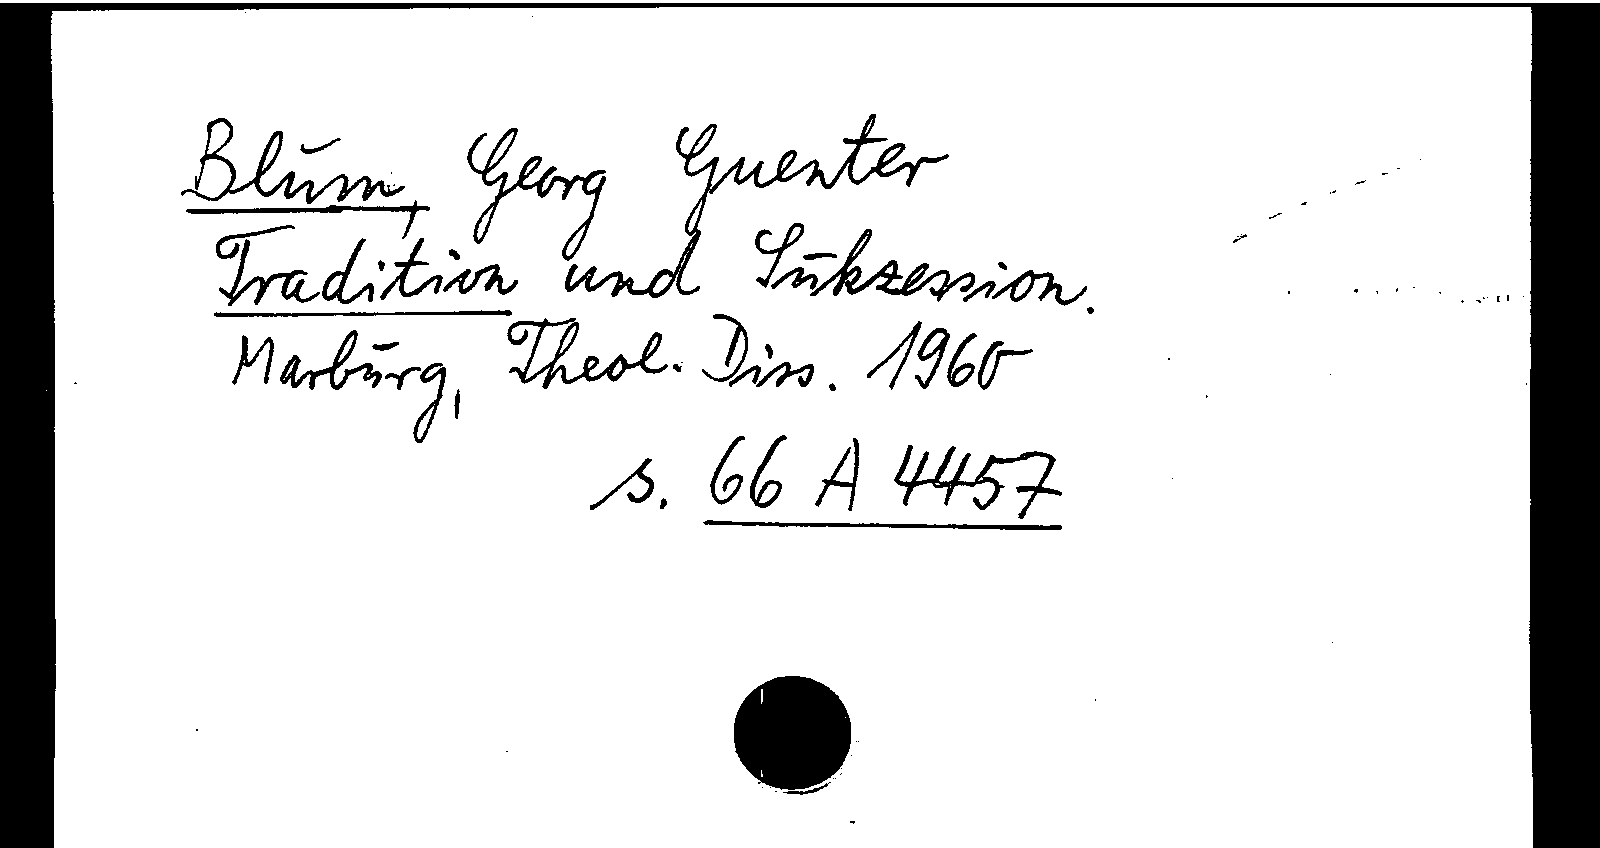 Blum, Georg Guenter
Tradition und Sukzession.
Marburg, Theol. Diss. 1960
s. 66 A 4457